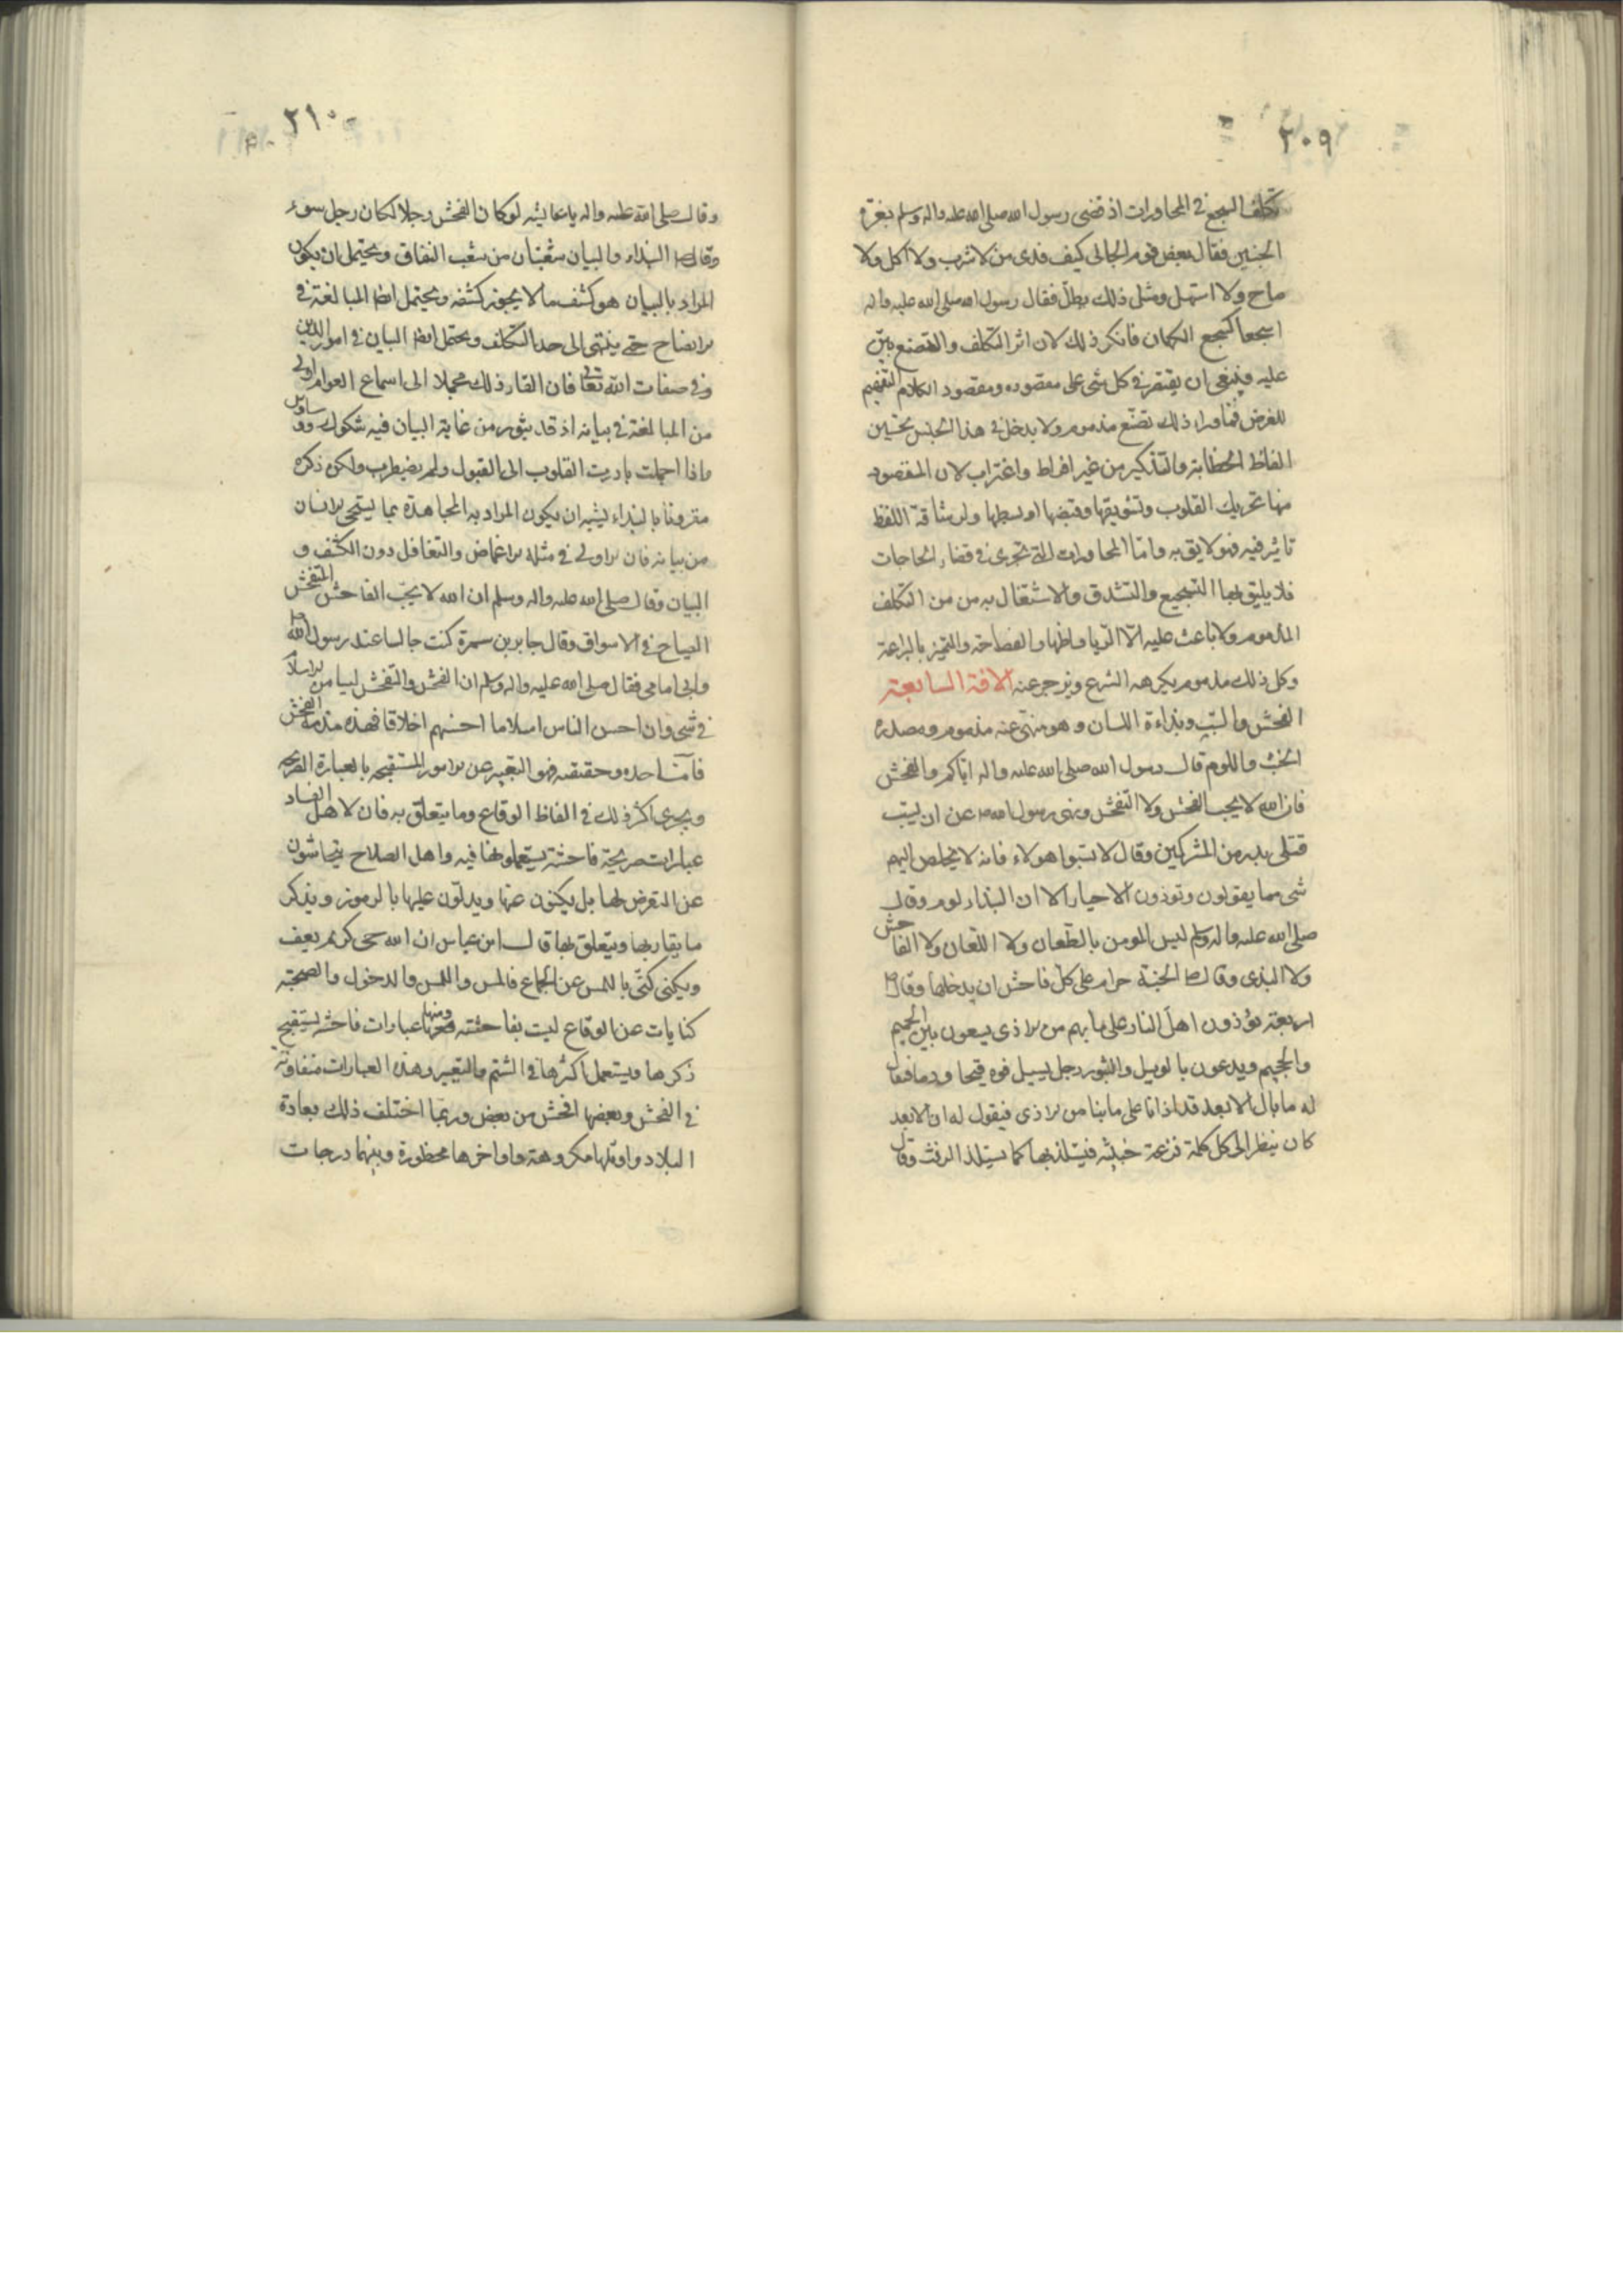 ٢٠٩
تكلف السجع في المحاورات اذ قضى رسول الله صلى الله عليه واله وسلم بغرة
الجنين فقال بعض قوم الجاني كيف ندى من لا شرب ولا اكل ولا
صاح ولا استهل ومثل ذلك يطل فقال رسول الله صلى الله عليه واله
اسجعا كسجع الكهان فانكر ذلك لان اثر التكلف والتصنع بين
عليه فينبغي ان يقتصر في كل شي على مقصوده ومقصود الكلام التفهيم
للغرض فما وراء ذلك تصنع مذموم ولا يدخل في هذا الجنس تحسين
الفاظ الخطابة والتذكير من غير افراط واغتراب لان المقصود
منها تحريك القلوب وتشويقها وقبضها او بسطها ولرشاقة اللفظ
تاثير فيه فهو لايق به واما المحاورات التي تجرى في قضاء الحاجات
فلا يليق بها التسجيع والتشدق والاشتغال به من من التكلف
المذموم ولا باعث عليه الا الريا واظهار الفصاحة والتميز بالبراعة
وكل ذلك مذموم يكرهه الشرع ويزجر عنه الافة السابعة
الفحش والسب وبذاءة اللسان وهو منهى عنه مذموم ومصدره
الخبث واللوم قال رسول الله صلى الله عليه واله اياكم والفحش
فان الله لا يحب الفحش ولا التفحش ونهى رسول الله ص عن ان يسب
قتلى بدر من المشركين وقال لا تسبوا هولاء فانه لا يخلص اليهم
شى مما يقولون وتوذون الاحياء الا ان البذاء لوم وقال
صلى الله عليه واله وسلم ليس المومن بالطعان ولا اللعان ولا الفاحش
ولا البذى وقال ص الجنة حرام على كل فاحش ان يدخلها وقال ص
اربعة يؤذون اهل النار على ما بهم من الاذى يسعون بين الحميم
والجحيم ويدعون بالويل والثبور رجل يسيل فوه قيحا ودما فيقال
له ما بال الابعد قد اذانا على ما بنا من الاذى فيقول له ان الابعد
كان ينظر الى كل كلمة قذعة خبيثه فيستلذ بها كما يستلذ الرفث وقال
٢١٠
وقال صلى الله عليه واله يا عايشه لو كان الفحش رجلا لكان رجل سوء
وقال ص البذاء والبيان شعبتان من شعب النفاق ويحتمل ان يكون
المراد بالبيان هو كشف ما لا يجوز كشفه ويحتمل ايضا المبالغة في
الايضاح حتى ينتهى الى حد التكلف ويحتمل ايضا البيان في امور الدين
وفي صفات الله تعالى فان القاء ذلك مجملا الى اسماع العوام اولى
من المبالغة في بيانه اذ قد يثور من غاية البيان فيه شكوك ووساوس
واذا اجملت بادرت القلوب الى القبول ولم يضطرب ولكن ذكره
مقرونا بالبذاء يشبه ان يكون المراد به المجاهدة بما يستحى الانسان
من بيانه فان الاولى في مثله الاغماض والتغافل دون الكشف و
البيان وقال صلى الله عليه واله وسلم ان الله لا يحب الفاحش المتفحش
الصياح في الاسواق وقال جابر بن سمرة كنت جالسا عند رسول الله ص
وابى امامى فقال صلى الله عليه واله وسلم ان الفحش والتفحش ليسا من الاسلام
في شى وان احسن الناس اسلاما احسنهم اخلاقا فهذه مذمة الفحش
فاما حده وحقيقته فهو التعبير عن الامور المستقبحه بالعبارة الصريحه
ويجرى اكثر ذلك في الفاظ الوقاع وما يتعلق به فان لاهل الفساد
عبارات صريحة فاحشة يستعملونها فيه واهل الصلاح يتحاشون
عن التعرض لها بل يكنون عنها ويدلون عليها بالرموز ويذكر
ما يقاربها ويتعلق بها قال ابن عباس ان الله حى كريم يعف
ويكنى كنى باللمس عن الجماع فالمس واللمس والدخول والصحبة
كنايات عن الوقاع ليست بفاحشته ومنها عبارات فاحشه يستقبح
ذكرها ويستعمل اكثرها في الشتم والتعيير وهذه العبارات متفاوتة
في الفحش وبعضها افحش من بعض وربما اختلف ذلك بعادة
البلاد واوئلها مكروهة واواخرها محظورة وبينهما درجات